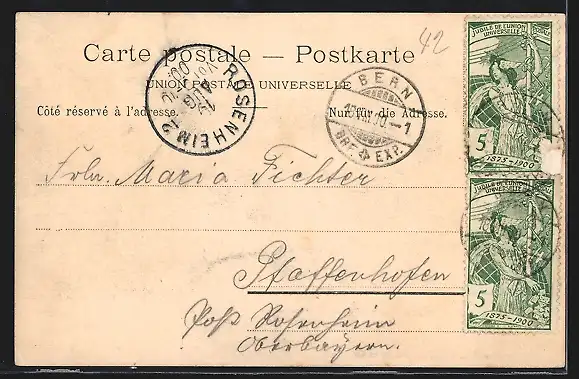 42
Carte postale — Postkarte
UNION POSTALE UNIVERSELLE
Côté réservé à l'adresse.
Nur für die Adresse.
ROSENHEIM 2
AUG
BERN
BRF. EXP.
1
Frln. Maria Fichter
Pfaffenhofen
Post Rosenheim
Oberbayern.
JUBILÉ DE L'UNION
UNIVERSELLE
5
1875-1900
JUBILÉ DE L'UNION
UNIVERSELLE
5
1875-1900